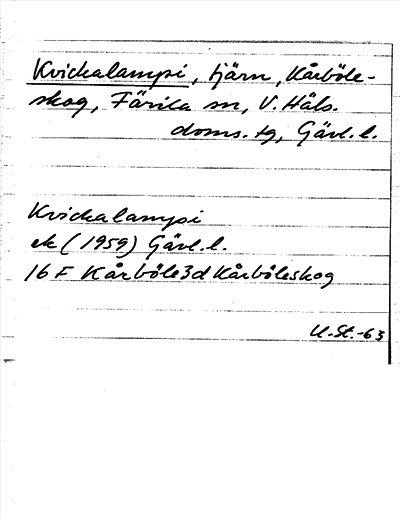 Kvickalampi, tjärn, Kårböle-
skog, Färila sn, V. Häls.
doms. tg, Gävl. l.
Kvickalampi
ek (1959) Gävl. l.
16 F Kårböle 3d Kårböleskog
U. St. -63